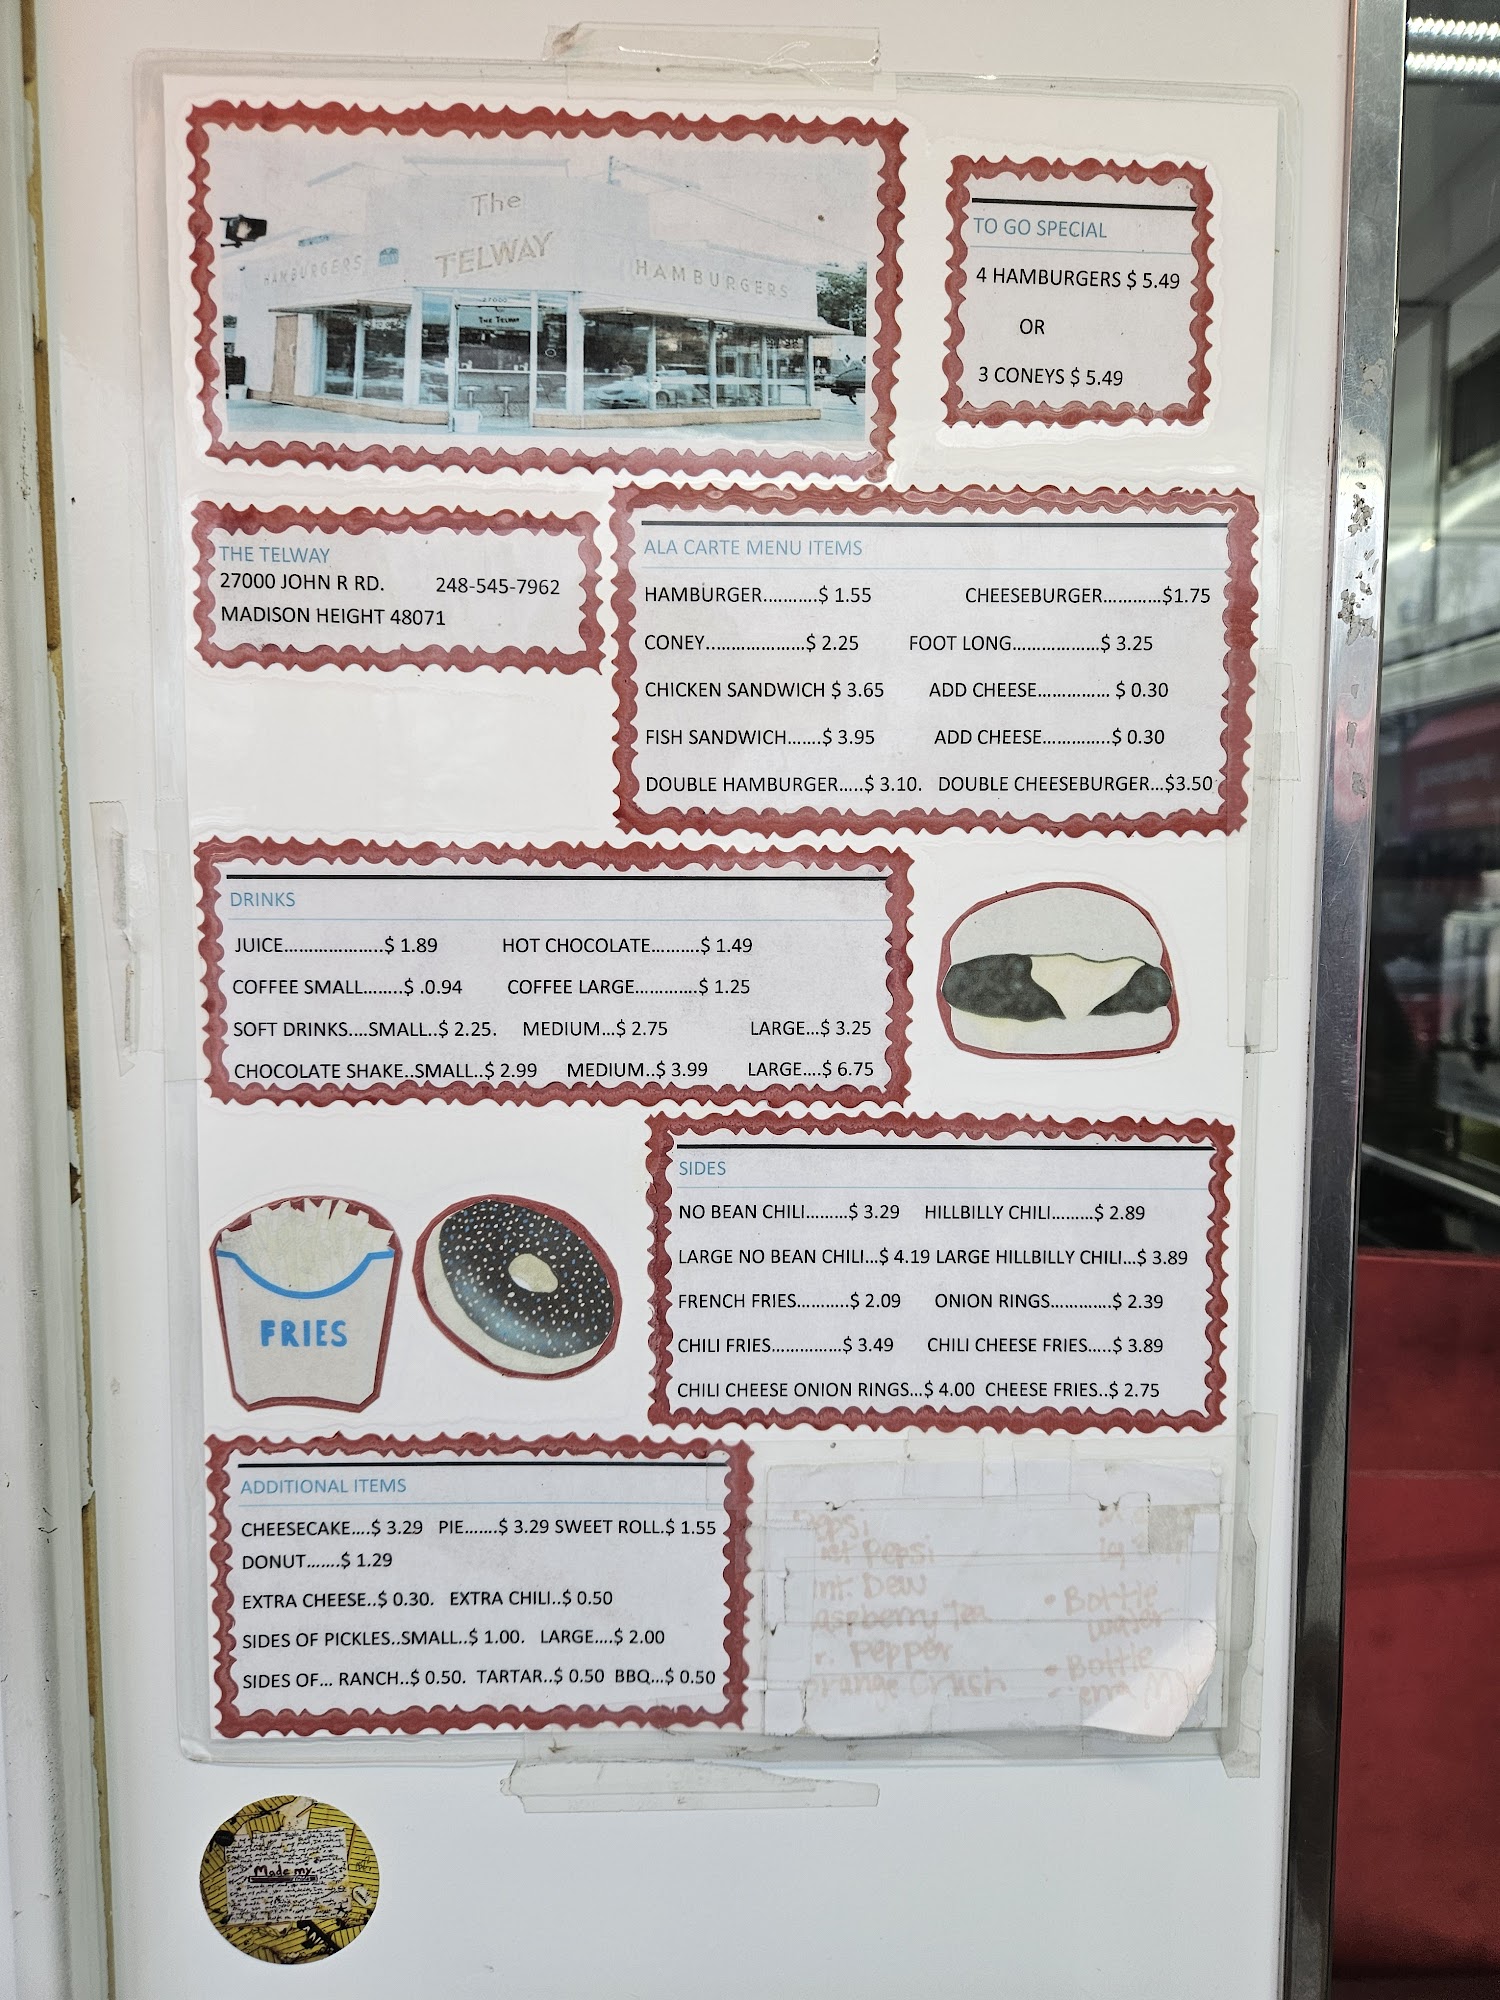 The
TELWAY
HAMBURGERS
HAMBURGERS
27000
THE TELWAY
TO GO SPECIAL
4 HAMBURGERS $ 5.49
OR
3 CONEYS $ 5.49
THE TELWAY
27000 JOHN R RD. 248-545-7962
MADISON HEIGHT 48071
ALA CARTE MENU ITEMS
HAMBURGER...........$ 1.55 CHEESEBURGER............$1.75
CONEY....................$ 2.25 FOOT LONG..................$ 3.25
CHICKEN SANDWICH $ 3.65 ADD CHEESE............... $ 0.30
FISH SANDWICH.......$ 3.95 ADD CHEESE..............$ 0.30
DOUBLE HAMBURGER.....$ 3.10. DOUBLE CHEESEBURGER...$3.50
DRINKS
JUICE....................$ 1.89 HOT CHOCOLATE..........$ 1.49
COFFEE SMALL........$ .0.94 COFFEE LARGE.............$ 1.25
SOFT DRINKS....SMALL..$ 2.25. MEDIUM...$ 2.75 LARGE...$ 3.25
CHOCOLATE SHAKE..SMALL..$ 2.99 MEDIUM..$ 3.99 LARGE....$ 6.75
SIDES
NO BEAN CHILI.........$ 3.29 HILLBILLY CHILI.........$ 2.89
LARGE NO BEAN CHILI...$ 4.19 LARGE HILLBILLY CHILI...$ 3.89
FRENCH FRIES...........$ 2.09 ONION RINGS.............$ 2.39
CHILI FRIES...............$ 3.49 CHILI CHEESE FRIES.....$ 3.89
CHILI CHEESE ONION RINGS...$ 4.00 CHEESE FRIES..$ 2.75
FRIES
ADDITIONAL ITEMS
CHEESECAKE....$ 3.29 PIE.......$ 3.29 SWEET ROLL.$ 1.55
DONUT.......$ 1.29
EXTRA CHEESE..$ 0.30. EXTRA CHILI..$ 0.50
SIDES OF PICKLES..SMALL..$ 1.00. LARGE....$ 2.00
SIDES OF... RANCH..$ 0.50. TARTAR..$ 0.50 BBQ...$ 0.50
Pepsi
Pepsi
Dew
Tea
Pepper
Crush
• Bottle
water
• Bottle
Made my